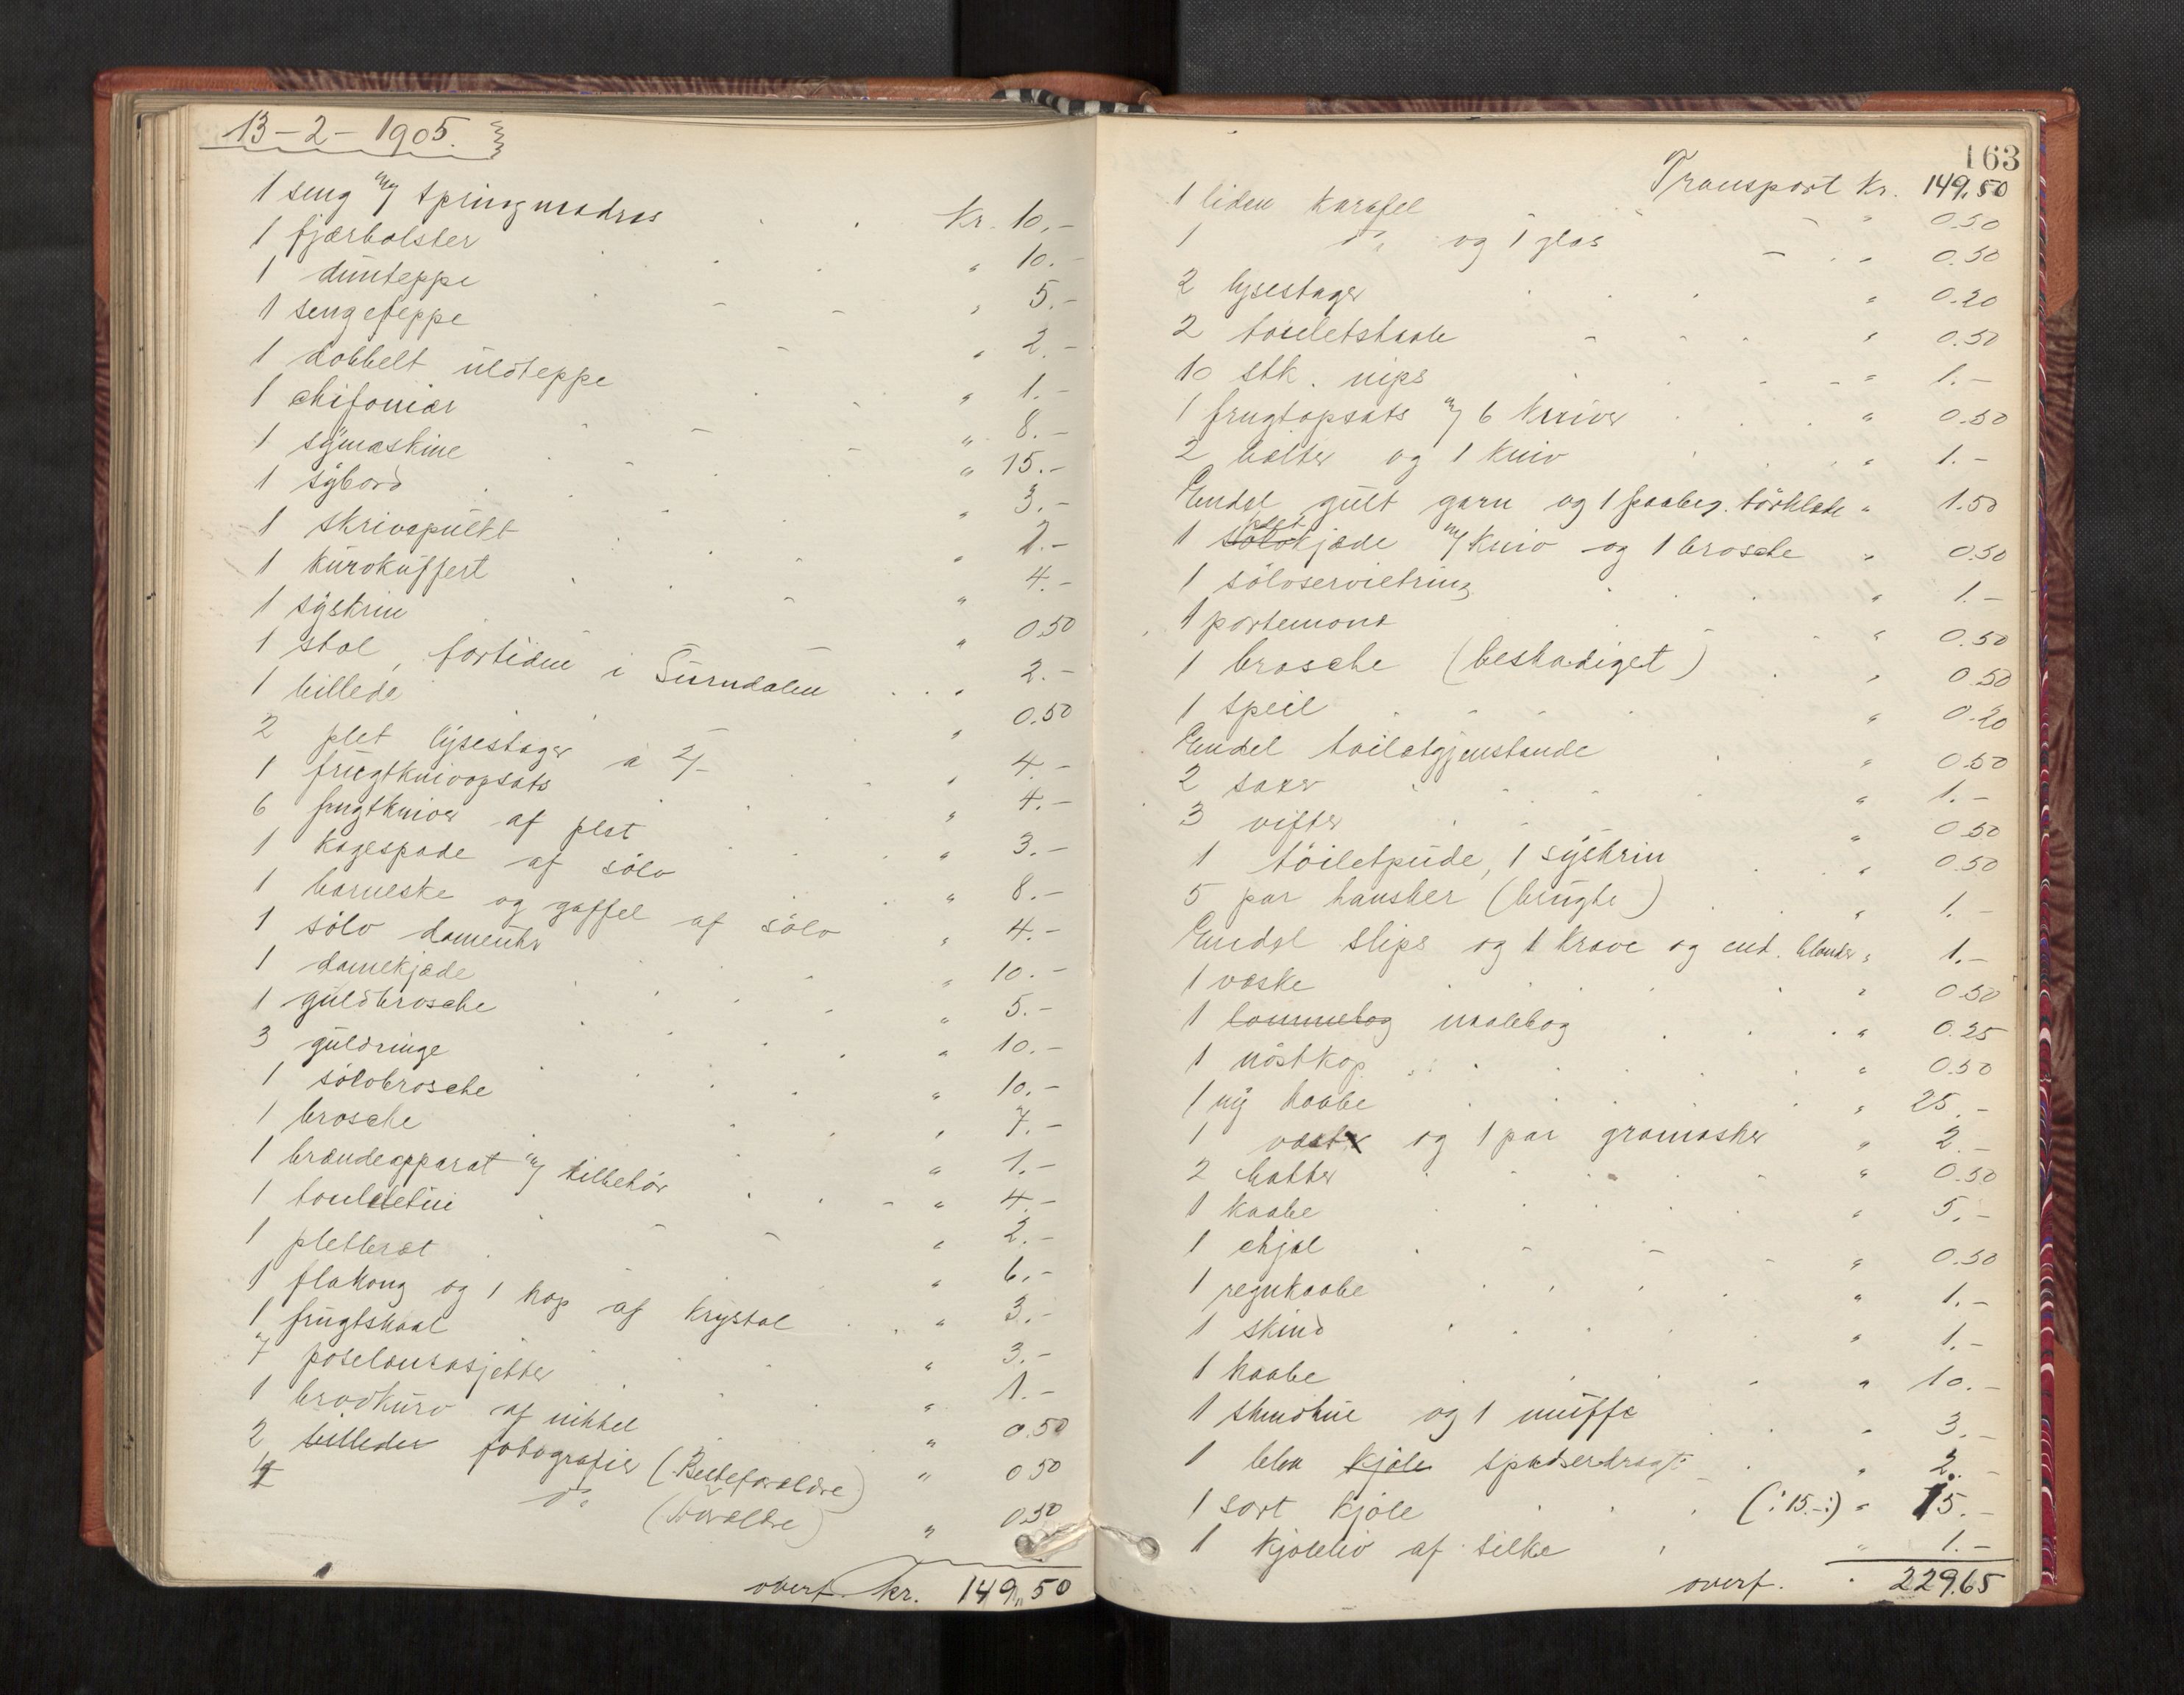 13-2-1905.
1 seng m/ springmadras kr. 10.-
1 fjærbolster " 10.-
1 dunteppe " 5.-
1 sengeteppe " 2.-
1 dobbelt uldteppe " 1.-
1 chifoniær " 8.-
1 symaskine " 15.-
1 sybord " 3.-
1 skrivepultt " 2.-
1 kurvkuffert " 4.-
1 syskrin " 0.50
1 stol, fortiden i Surndalen " 2.-
1 billede " 0.50
2 plet lysestager a 2/- " 4.-
1 frugtknivopsats " 4.-
6 frugtkniver af plet " 3.-
1 kagespade af sölv " 8.-
1 barneske og gaffel af sölv " 4.-
1 sölv dameuhr " 10.-
1 damekjæde " 5.-
1 guldbrosche " 10.-
3 guldringe " 10.-
1 sölvbrosche " 7.-
1 brosche " 1.-
1 brændeapparat m/ tilbehör " 4.-
1 " 2.-
1 pletbræt " 6.-
1 flakong og 1 kop af krystal " 3.-
1 frugtskaal " 3.-
7 poselænsasjetter " 1.-
1 brødkurv af nikkel " 0.50
2 billeder fotografier (Bestefoældre) " 0.50
1 do (Forældre) " 0.50
overf. kr. 149,,50
163
Transport kr. 149.50
1 liden karafel " 0.50
1 do og 1 glas " 0.50
2 lysestager " 0.20
2 toiletskaale " 0.50
10 stk. nips " 1.-
1 frugtopsats m/ 6 kniver " 0.50
2 belter og 1 kniv " 1.-
Endel gult garn og 1 paabeg. törklæde " 1.50
1 sölv plet kjæde m/ kniv og 1 brosche " 0.50
1 sölvservietring " 1.-
1 portemonæ " 0.50
1 brosche (beskadiget) " 0.50
1 speil " 0.20
Endel toiletgjenstande " 0.50
2 saxer " 1.-
3 vifter " 0.50
1 töiletpude, 1 syskrin " 0.50
5 par hansker (brugte) " 1.-
Endel slips og 1 krave og end. blonder " 1.-
1 væske " 0.50
1 lommebog malebog " 0.25
1 möstkop " 0.50
1 ny kaabe " 25.-
1 vest og 1 par gramasker " 2.-
2 hatter " 0.50
1 kaabe " 5.-
1 chjal " 0.50
1 regnkaabe " 1.-
1 skind " 1.-
1 kaabe " 10.-
1 skindhue og 1 muffe " 3.-
1 blaa kjole spadserdragt " 2.-
1 sort kjole (: 15.-:) " 15.-
1 kjoleliv af silke " 1.-
overf. 229.65